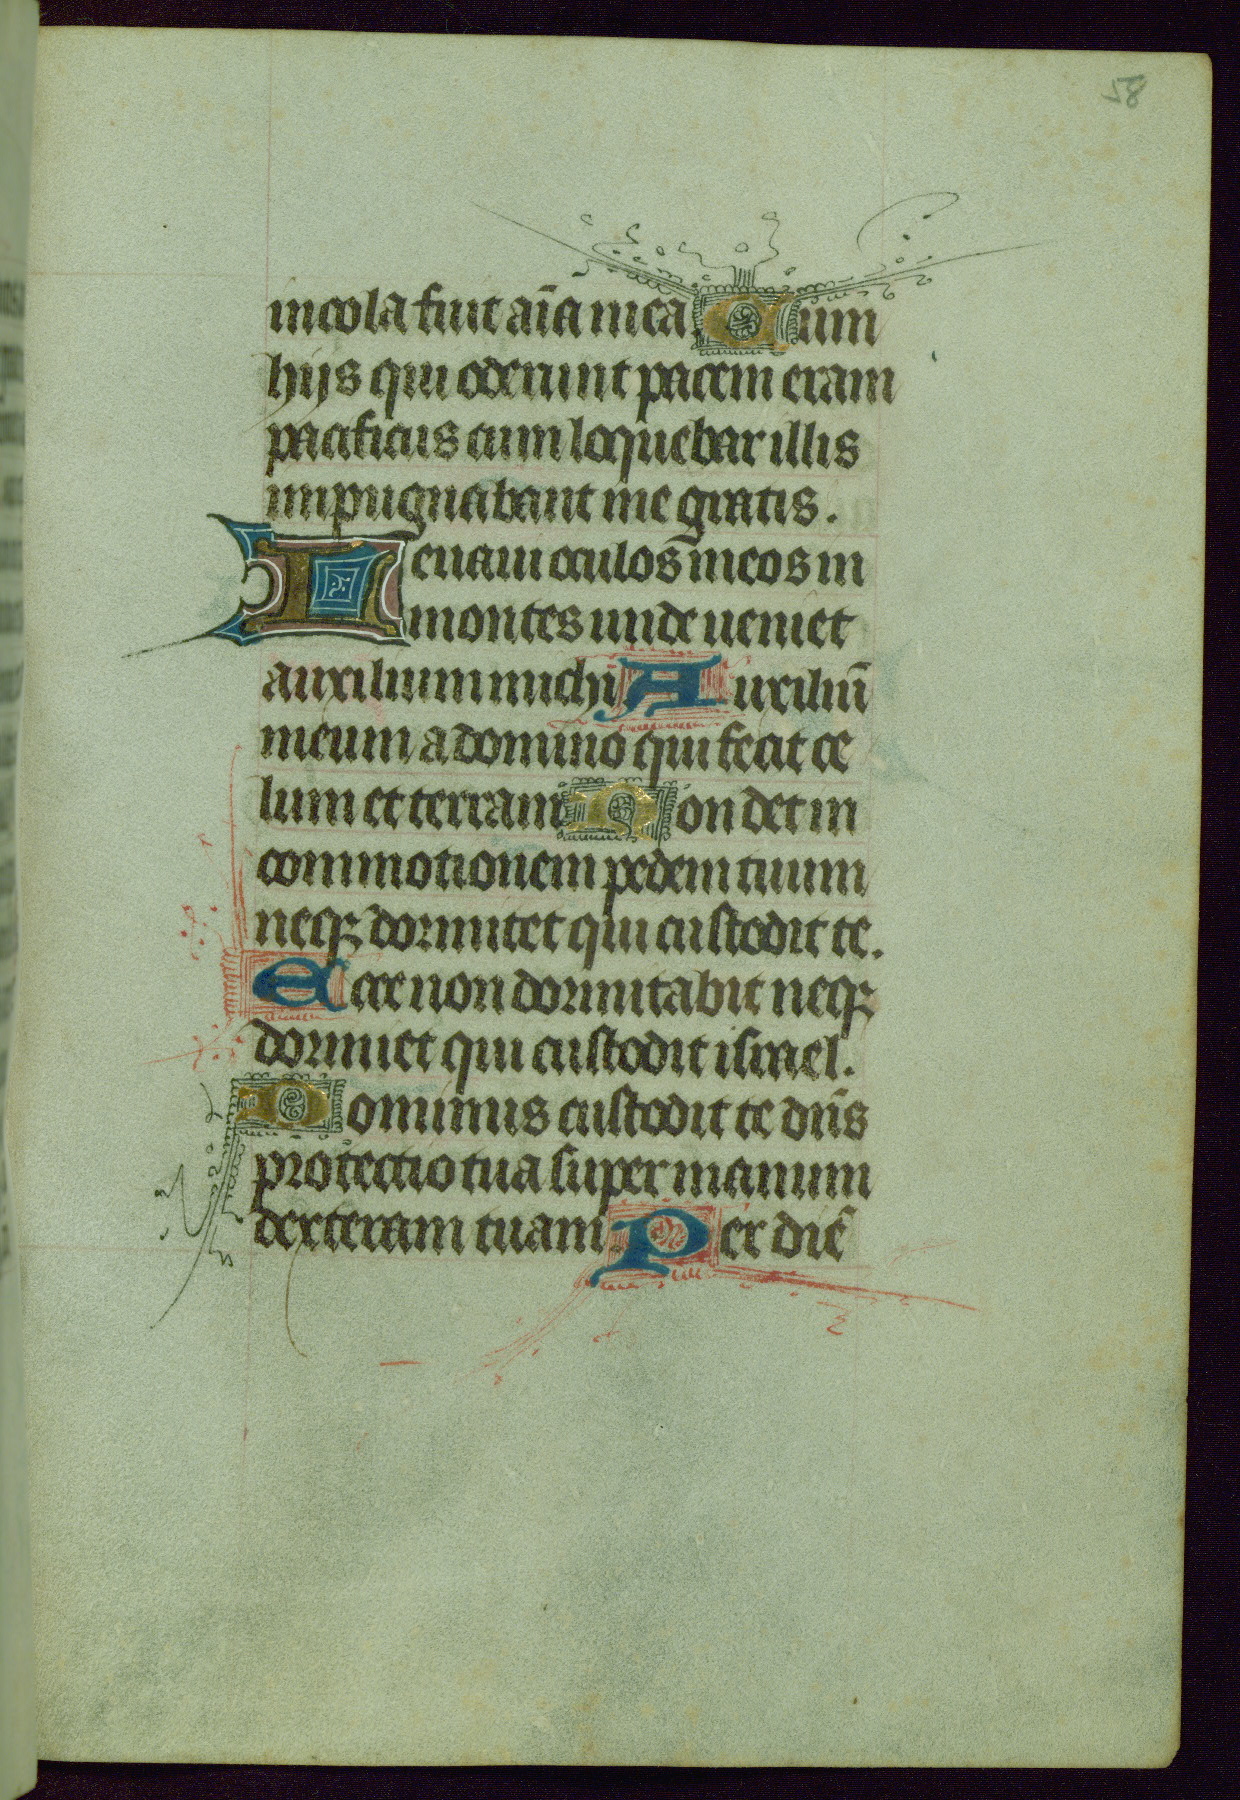 58
incola fuit aīa mea Cum
hijs qui oderunt pacem eram
pacificus cum loquebar illis
impugnabant me gratis.
Leuaui oculos meos in
montes unde ueniet
auxilium michi Auxiliū
meum a domino qui fecit ce
lum et terram Non det in
commotionem pedem tuum
neqꝫ dormitet qui custodit te.
Ecce non dormitabit neqꝫ
dormiet qui custodit israel.
Dominus custodit te dn̄s
protectio tua super manum
dexteram tuam Per diē